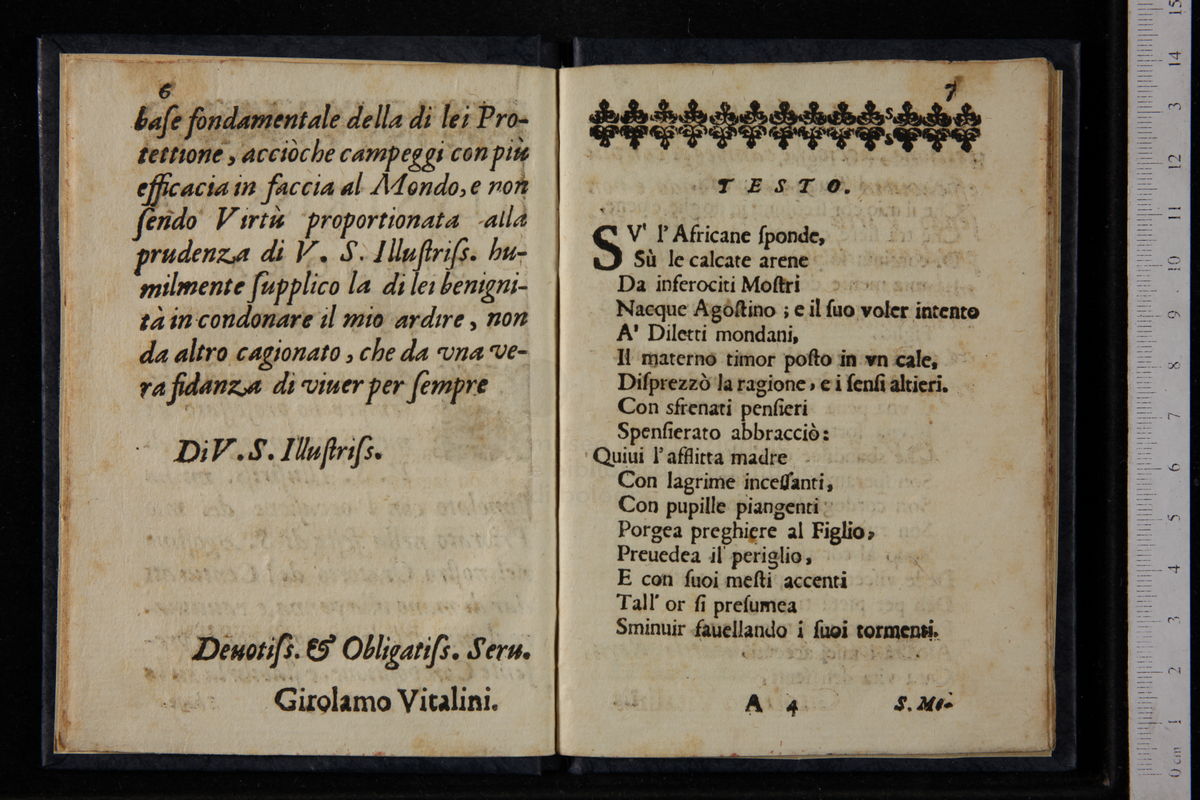 6
baſe fondamentale della di lei Pro-
tettione, acciòche campeggi con più
efficacia in faccia al Mondo, e non
ſendo Virtù proportionata alla
prudenza di V. S. Illuſtriſs. hu-
milmente ſupplico la di lei benigni-
tà in condonare il mio ardire, non
da altro cagionato, che da vna ve-
ra fidanza di viuer per ſempre
Di V. S. Illuſtriſs.
Deuotiſs. & Obligatiſs. Seru.
Girolamo Vitalini.
7
TESTO.
SV' l'Africane ſponde,
Sù le calcate arene
Da inferociti Moſtri
Nacque Agoſtino; e il ſuo voler intento
A' Diletti mondani,
Il materno timor poſto in vn cale,
Diſprezzò la ragione, e i ſenſi altieri.
Con sfrenati penſieri
Spenſierato abbracciò:
Quiui l'afflitta madre
Con lagrime inceſſanti,
Con pupille piangenti
Porgea preghiere al Figlio,
Preuedea il periglio,
E con ſuoi meſti accenti
Tall'or ſi preſumea
Sminuir fauellando i ſuoi tormenti.
A 4
S. Mo-
0 cm 1 2 3 4 5 6 7 8 9 10 11 12 13 14 15